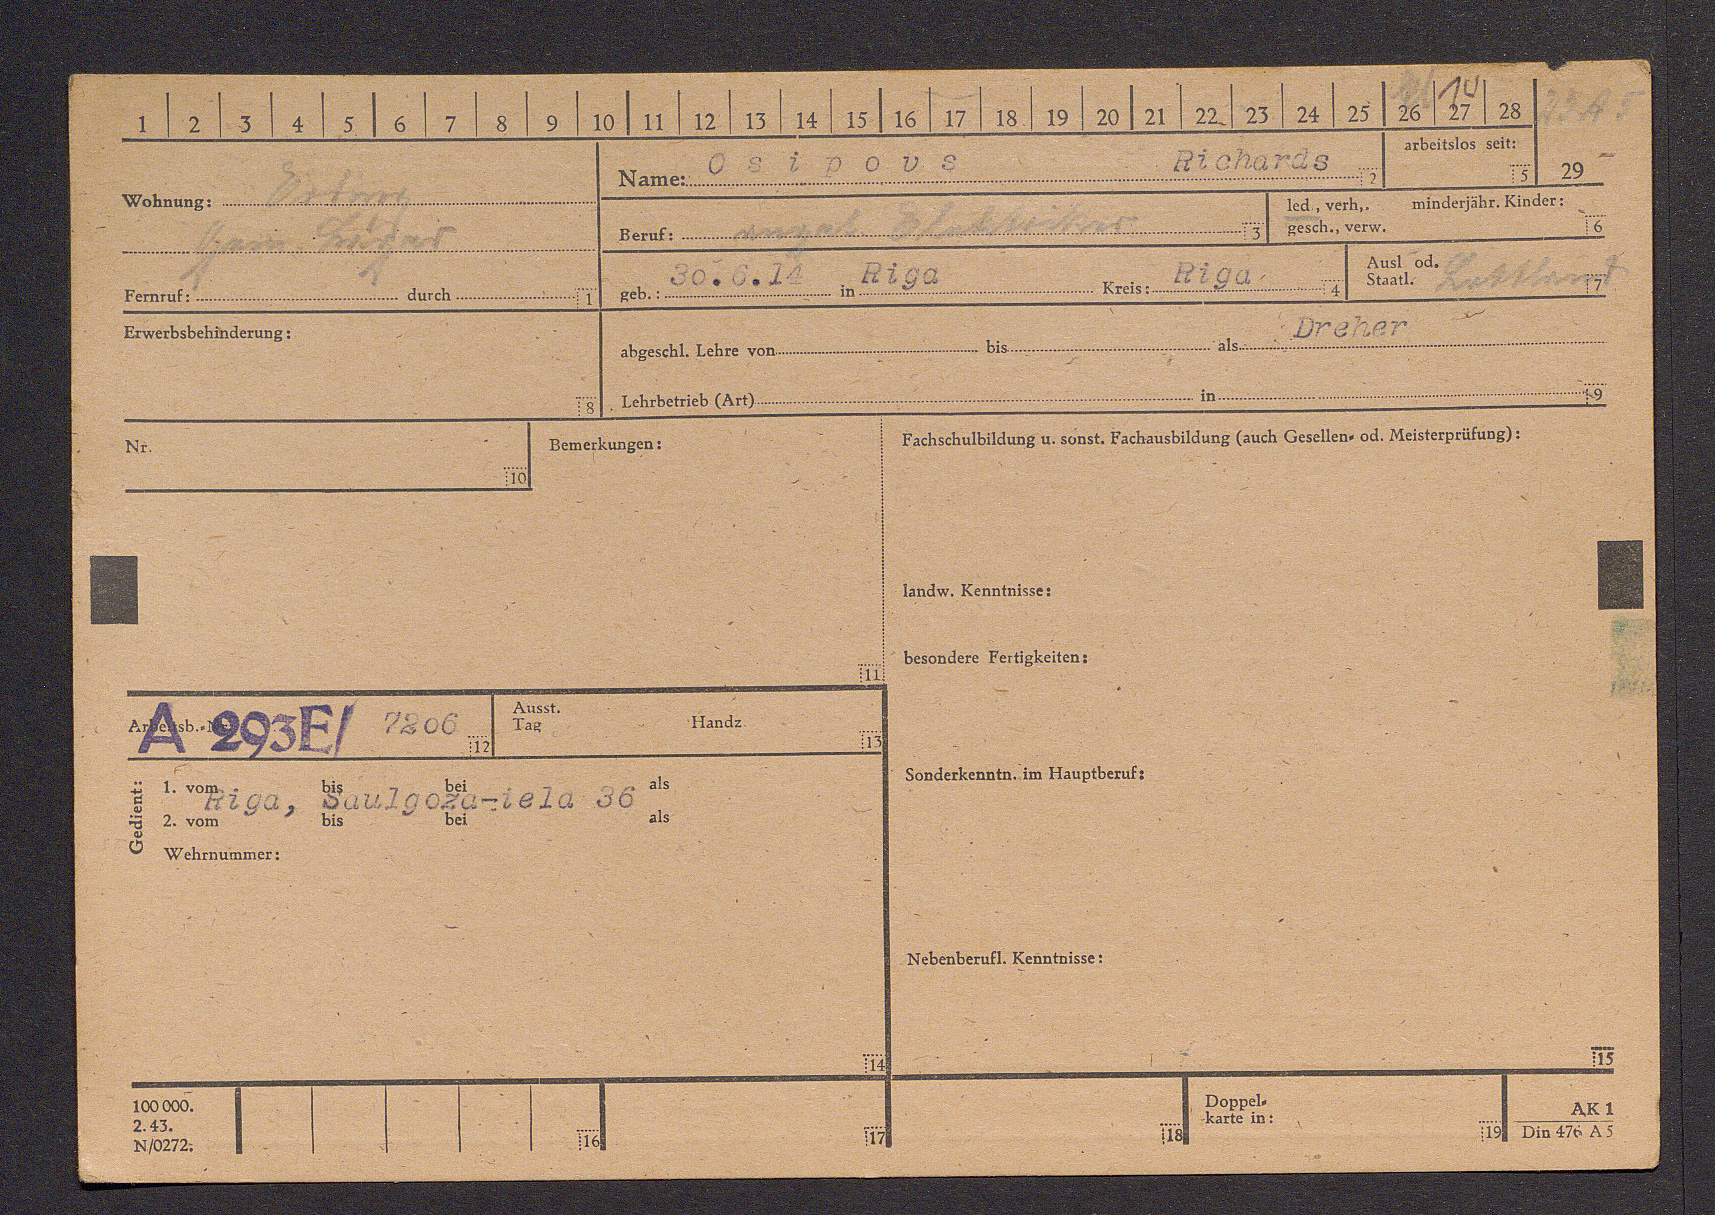 1 2 3 4 5 6 7 8 9 10 11 12 13 14 15 16 17 18 19 20 21 22 23 24 25 26 27 28
14
23 A 5
29
Wohnung:
Fernruf: durch 1
Name: Osipovs Richards 2
arbeitslos seit: 5
Beruf: Elektriker 3
led., verh,. minderjähr. Kinder:
gesch., verw. 6
geb.: 30.6.14 in Riga Kreis: Riga 4
Ausl od.
Staatl. Lettland 7
Erwerbsbehinderung:
8
abgeschl. Lehre von bis als Dreher
Lehrbetrieb (Art) in 9
Nr.
10
Bemerkungen:
11
Fachschulbildung u. sonst. Fachausbildung (auch Gesellen- od. Meisterprüfung):
landw. Kenntnisse:
besondere Fertigkeiten:
Sonderkenntn. im Hauptberuf:
Nebenberufl. Kenntnisse:
15
Arbeitsb.-Nr. A 293E/ 7206 12
Ausst.
Tag Handz 13
Gedient:
1. vom bis bei als
Riga, Saulgoza-iela 36
2. vom bis bei als
Wehrnummer:
14
100 000.
2. 43.
N/0272.
16
17
18
Doppel-
karte in: 19
AK 1
Din 476 A 5